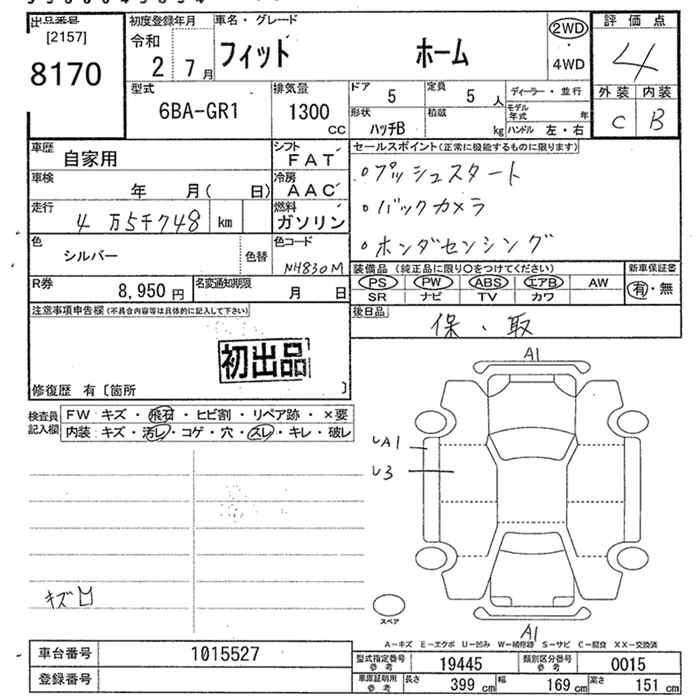 出品番号
[2157]
8170
初度登録年月
令和
2 7月
車名・グレード
フィット ホーム
2WD
・
4WD
評価点
4
外装 内装
C B
型式
6BA-GR1
排気量
1300
CC
ドア
5
定員
5 人
形状
ハッチB
積載
kg
ディーラー・並行
モデル年式 年
ハンドル 左・右
車歴
自家用
シフト
FAT
車検
年 月( 日)
冷房
AAC
走行
4万5千748 km
燃料
ガソリン
色
シルバー
色替
色コード
NH830M
R券
8,950円
名変通知期限
月 日
セールスポイント(正常に機能するものに限ります)
○プッシュスタート
○バックカメラ
○ホンダセンシング
装備品(純正品に限り○をつけてください)
PS PW ABS エアB AW
SR ナビ TV カワ
新車保証書
有・無
後日品
保、取
注意事項申告欄(不具合内容等は具体的に記入して下さい)
初出品
修復歴 有〔箇所 〕
検査員記入欄
FW キズ・飛石・ヒビ割・リペア跡・×要
内装:キズ・汚レ・コゲ・穴・スレ・キレ・破レ
キズ
A1
A1
U3
A1
スペア
A-キズ E-エクボ U-凹み W-補修跡 S-サビ C-腐食 XX-交換済
車台番号 1015527
登録番号
型式指定番号参考 19445
類別区分番号参考 0015
車庫証明用参考 長さ 399cm 幅 169cm 高さ 151cm